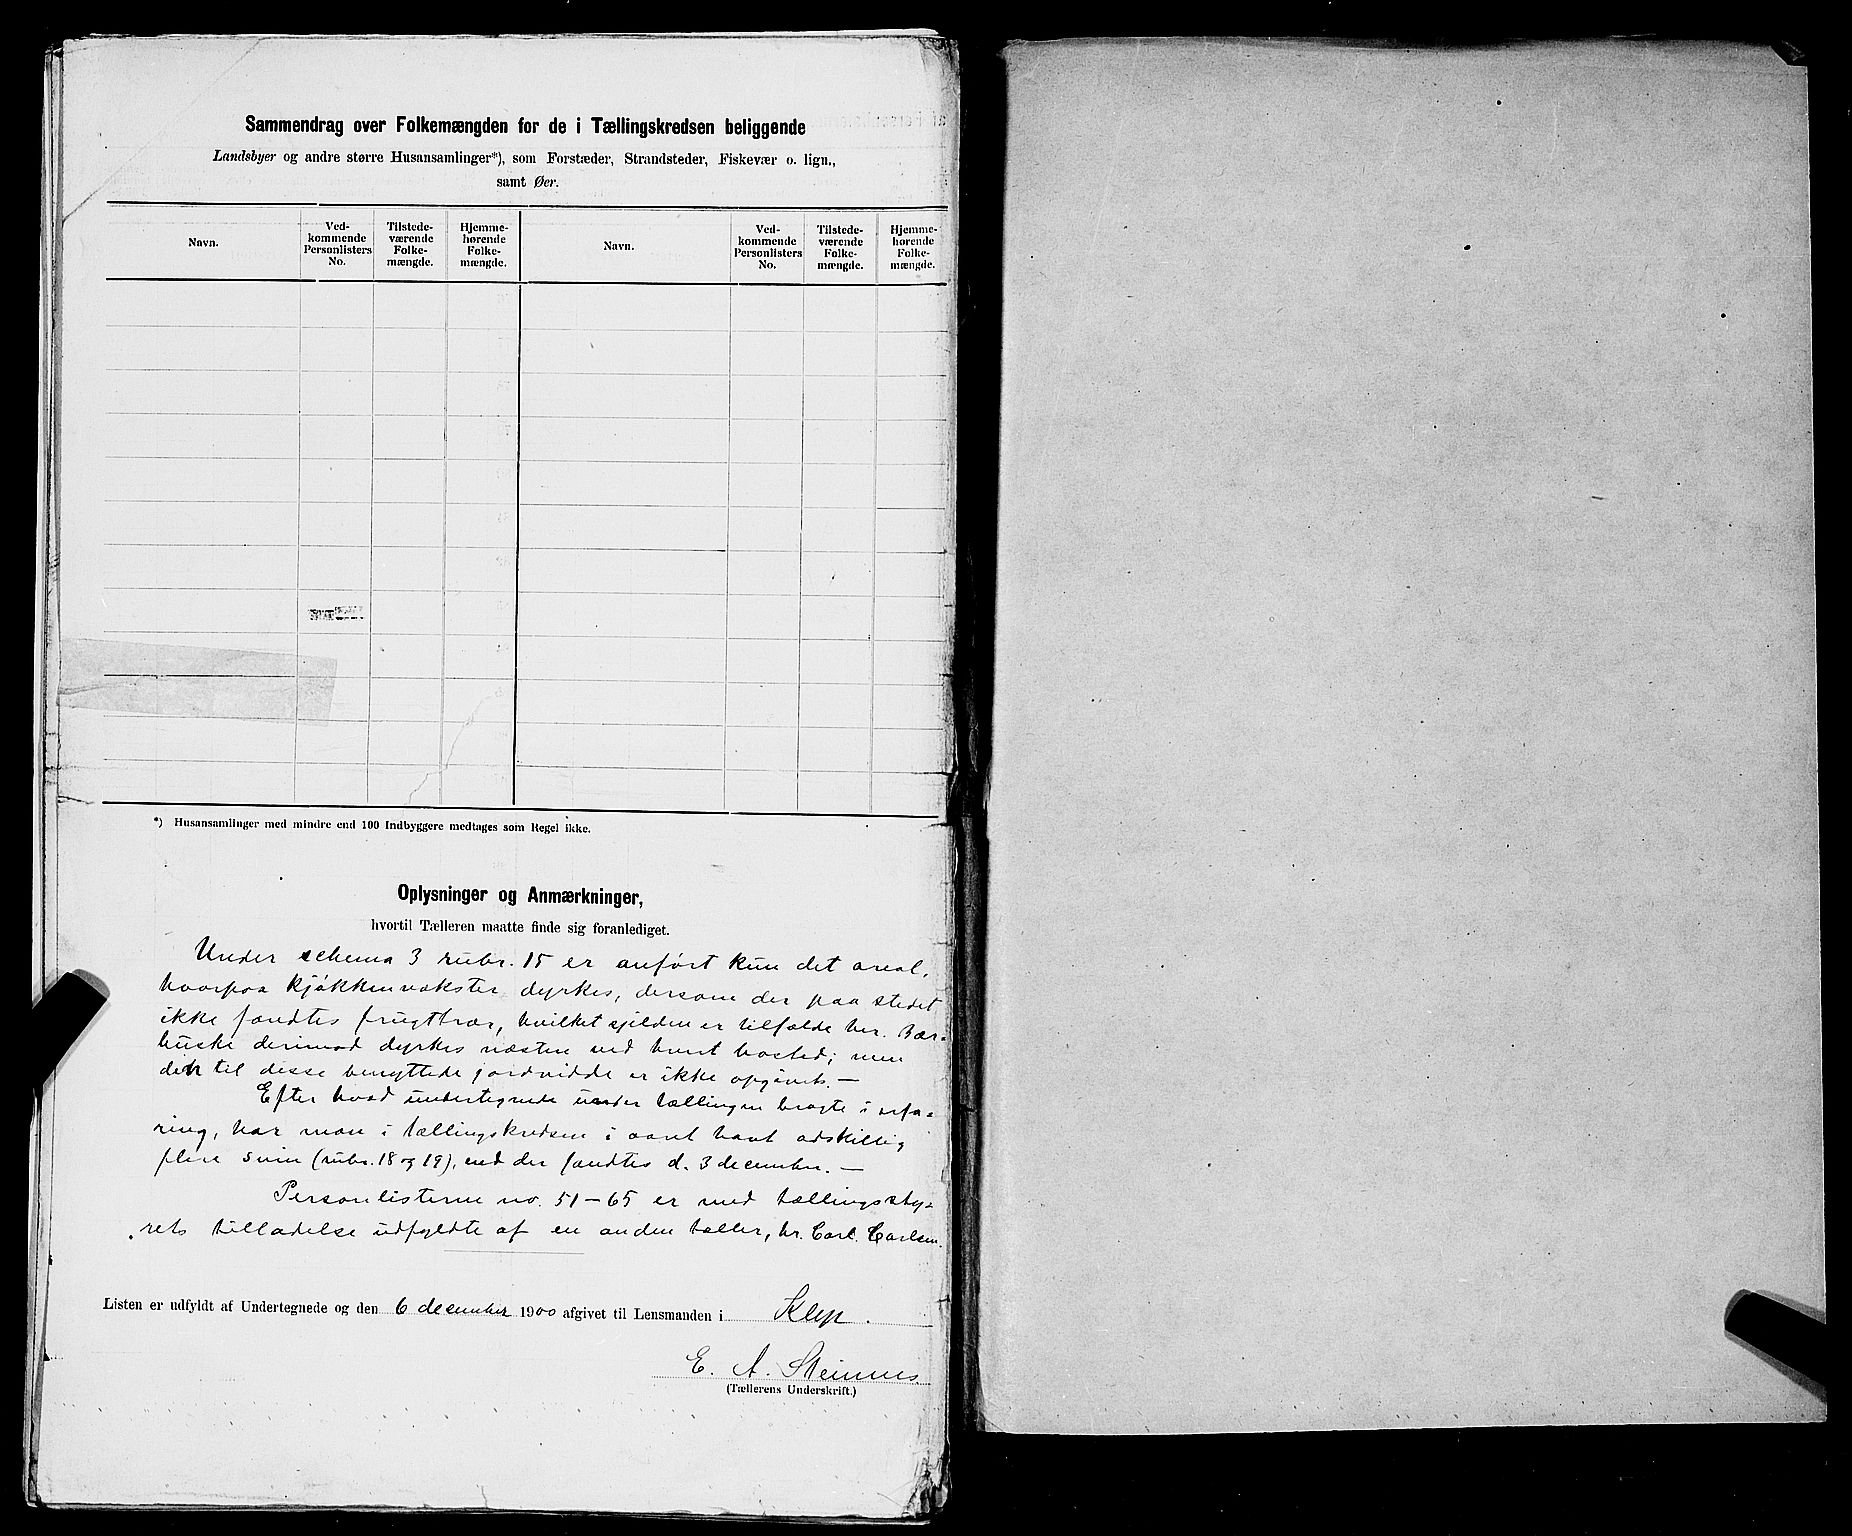 Sammendrag over Folkemængden for de i Tællingskredsen beliggende
Landsbyer og andre større Husansamlinger*), som Forstæder, Strandsteder, Fiskevær o. lign.,
samt Øer.
Navn.
Ved-
kommende
Personlisters
No.
Tilstede-
værende
Folke-
mængde.
Hjemme-
hørende
Folke-
mængde.
Navn.
Ved-
kommende
Personlisters
No.
Tilstede-
værende
Folke-
mængde.
Hjemme-
hørende
Folke-
mængde.
*) Husansamlinger med mindre end 100 Indbyggere medtages som Regel ikke.
Oplysninger og Anmærkninger,
hvortil Tælleren maatte finde sig foranlediget.
Under schema 3 rubr. 15 er anført kun det areal,
hvorpaa kjøkkenvækster dyrkes, dersom der paa stedet
ikke fandtes frugttrær, hvilket sjelden er tilfælde her. Bær-
buske derimod dyrkes næsten ved hvert bosted; men
den til disse benyttede jordvidde er ikke opgivet. —
Efter hvad undertegnede under tællingen bragte i erfa-
ring, har man i tællingskredsen i aaret havt adskillig
flere svin (rubr. 18 og 19), end der fandtes d. 3 december. —
Personlisterne no. 51 — 65 er med tællingssty-
rets tilladelse udfyldte af en anden tæller, hr. Carl Carlsen.
Listen er udfyldt af Undertegnede og den 6 december 1900 afgivet til Lensmanden i Klep.
E. A. Steinnes
(Tællerens Underskrift.)